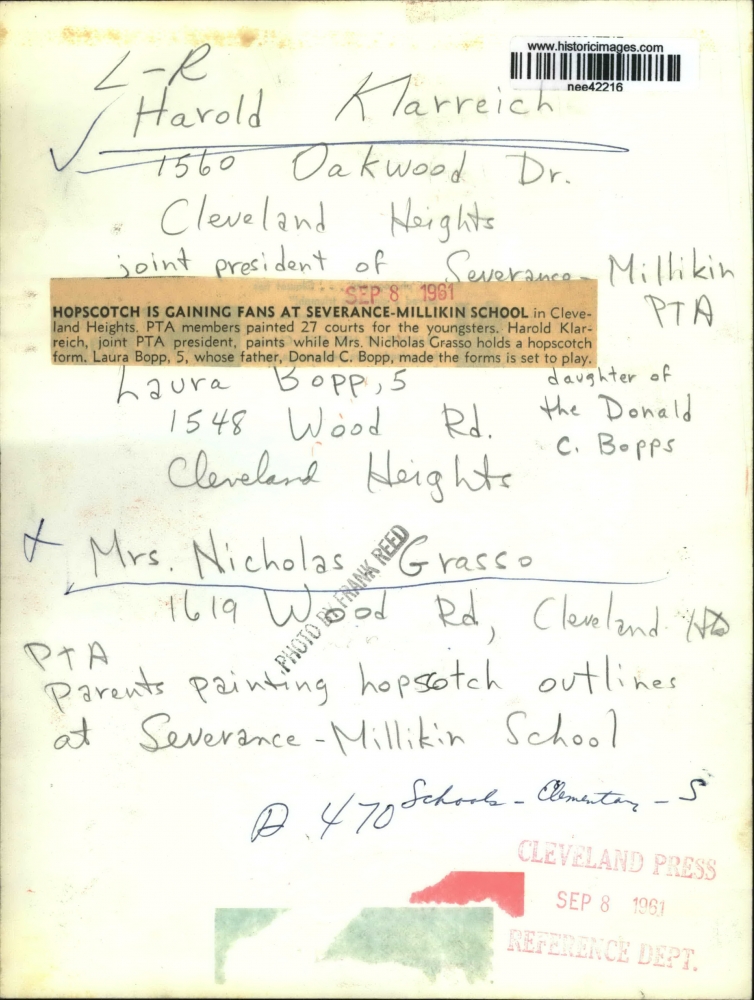 www.historicimages.com
nee42216
L-R
Harold Klarreich
1560 Oakwood Dr.
Cleveland Heights
joint president of Severance-Millikin
PTA
SEP 8 1961
HOPSCOTCH IS GAINING FANS AT SEVERANCE-MILLIKIN SCHOOL in Cleve-
land Heights. PTA members painted 27 courts for the youngsters. Harold Klar-
reich, joint PTA president, paints while Mrs. Nicholas Grasso holds a hopscotch
form. Laura Bopp, 5, whose father, Donald C. Bopp, made the forms is set to play.
Laura Bopp, 5
daughter of
the Donald
C. Bopps
1548 Wood Rd.
Cleveland Heights
Mrs. Nicholas Grasso
1619 Wood Rd, Cleveland
PHOTO BY FRANK REED
PTA
Parents painting hopscotch outlines
at Severance-Millikin School
470 Schools - Elementary - S
CLEVELAND PRESS
SEP 8 1961
REFERENCE DEPT.